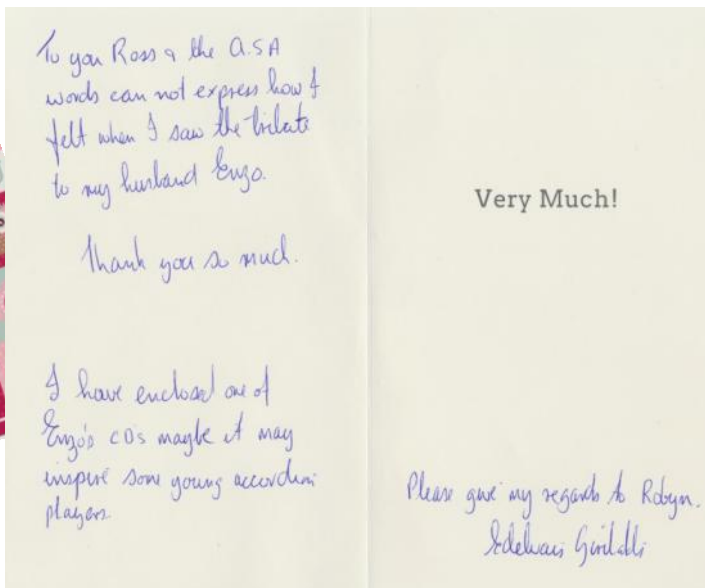 To you Ross & the A.S.A
words can not express how I
felt when I saw the tribute
to my husband Enzo.
Thank you so much.
I have enclosed one of
Enzo's CDs maybe it may
inspire some young accordion
players.
Very Much!
Please give my regards to Robyn.